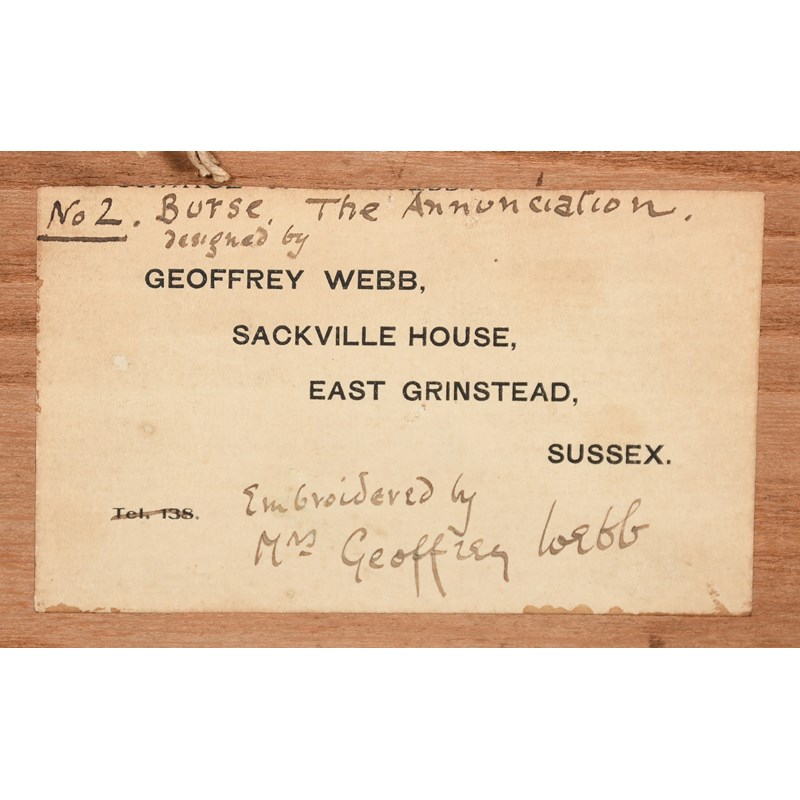 No 2. Burse. The Annunciation.
designed by
GEOFFREY WEBB,
SACKVILLE HOUSE,
EAST GRINSTEAD,
SUSSEX.
Embroidered by
Tel. 138.
Mrs Geoffrey Webb